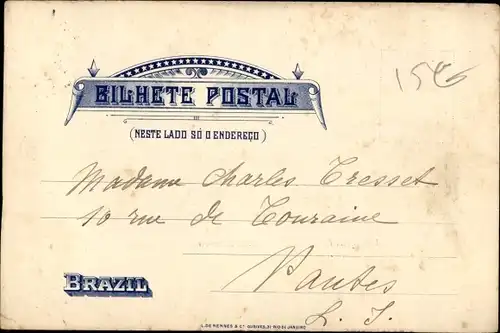 BILHETE POSTAL
(NESTE LADO SÓ O ENDEREÇO)
Madame Charles Tresset
10 rue de Touraine
Nantes
L. I.
BRAZIL
L. DE RENNES & Cª OURIVES, 31 RIO DE JANEIRO